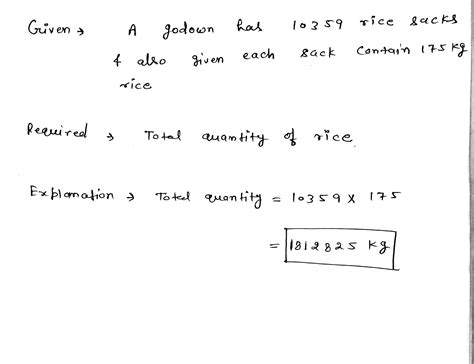 Given → A godown has 10359 rice sacks
& also given each sack contain 175 kg
rice
Required → Total quantity of rice
Explanation → Total quantity = 10359 x 175
= 1812825 kg